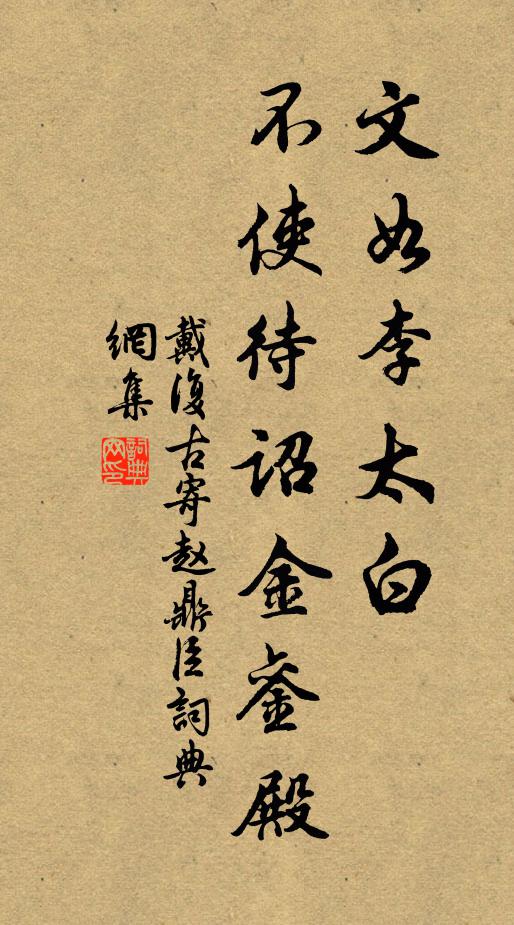 文如李太白
不使待诏金銮殿
戴復古寄赵鼎臣詞典
網集
詞典网印